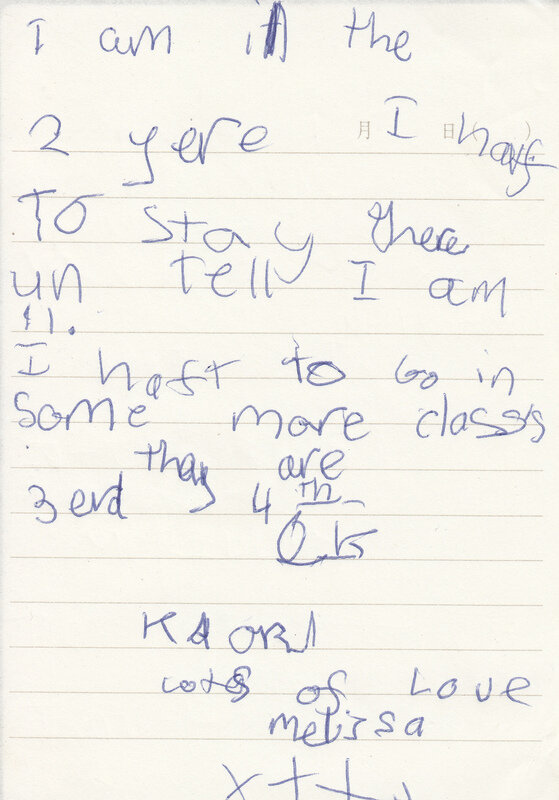 I am in the
月 日 ( )
2 yere I haft
To stay there
un tell I am
11.
I haft to Go in
some more classs
thay are
3 erd 4 th
Ok
KAORI
Lots of Love
melissa
x + + x